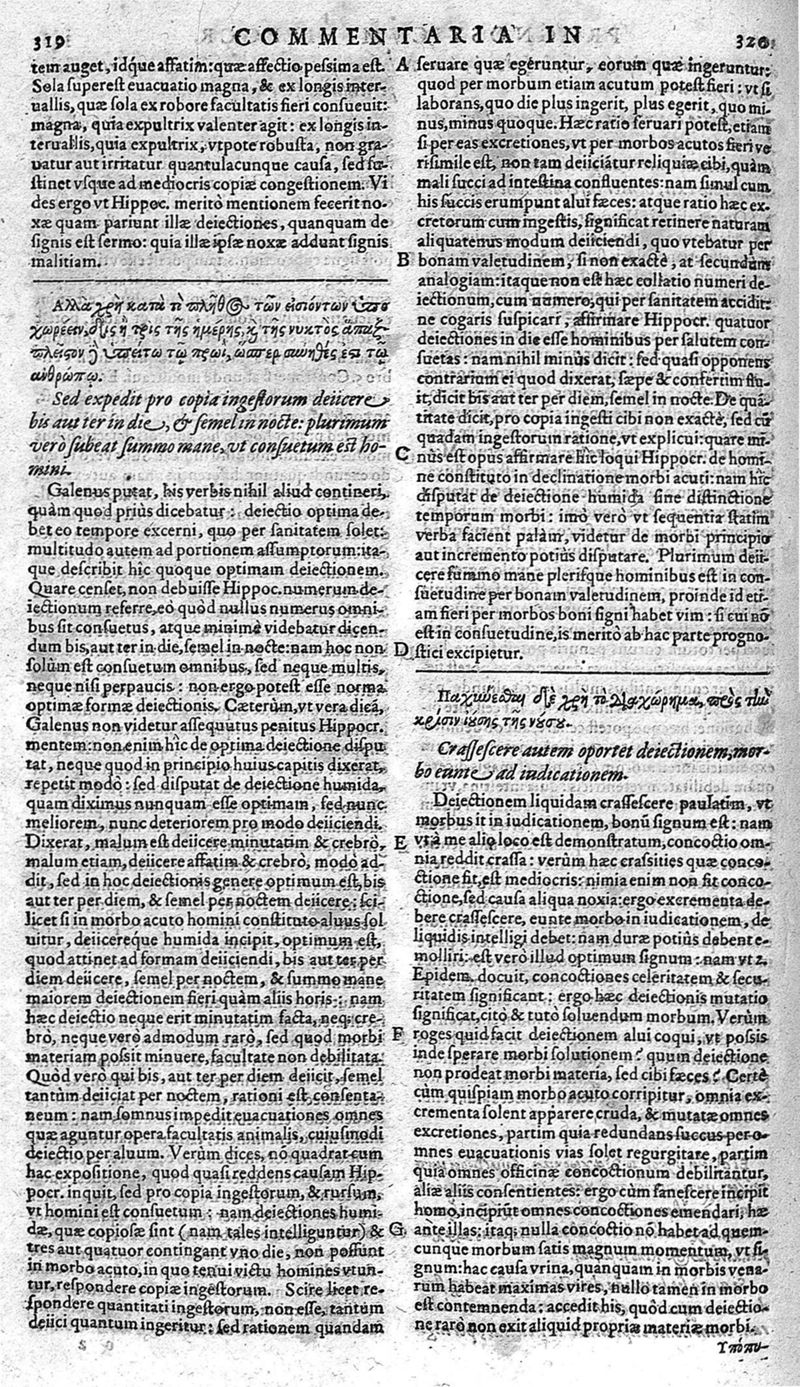 319 COMMENTARIA IN 320
tem auget, idque affatim: quæ affectio pessima est.
Sola superest euacuatio magna, & ex longis inter-
uallis, quæ sola ex robore facultatis fieri consueuit:
magna, quia expultrix valenter agit: ex longis in-
teruallis, quia expultrix, vtpote robusta, non gra-
uatur aut irritatur quantulacunque causa, sed su-
stinet vsque ad mediocris copiæ congestionem. Vi
des ergo vt Hippoc. meritò mentionem fecerit no-
xæ quam pariunt illæ deiectiones, quanquam de
signis est sermo: quia illæ ipsæ noxæ addunt signis
malitiam.
Ἀλλὰ χρὴ κατὰ τὸ πλῆθος τῶν εἰσιόντων ὑπο
χωρέειν, δὶς ἢ τρὶς τῆς ἡμέρης, κ̀ τῆς νυκτὸς ἅπαξ.
πλεῖστον ἢ ὑπείτω τὸ πρωῒ, ὥσπερ σύνηθές ἐστι τῷ
ἀνθρώπῳ.
Sed expedit pro copia ingestorum deiicere
bis aut ter in die, & semel in nocte: plurimum
verò subeat summo mane, vt consuetum est ho-
mini.
Galenus putat, his verbis nihil aliud contineri,
quàm quod prius dicebatur: deiectio optima de-
bet eo tempore excerni, quo per sanitatem solet:
multitudo autem ad portionem assumptorum: ita-
que describit hîc quoque optimam deiectionem.
Quare censet, non debuisse Hippoc. numerum de-
iectionum referre, eò quòd nullus numerus omni-
bus sit consuetus, atque minimè videbatur dicen-
dum bis, aut ter in die, semel in nocte: nam hoc non
solùm est consuetum omnibus, sed neque multis,
neque nisi perpaucis: non ergo potest esse norma
optimæ formæ deiectionis. Cæterùm, vt vera dicã,
Galenus non videtur assequutus penitus Hippocr.
mentem: non enim hîc de optima deiectione dispu
tat, neque quod in principio huius capitis dixerat,
repetit modò: sed disputat de deiectione humida,
quam diximus nunquam esse optimam, sed nunc
meliorem, nunc deteriorem pro modo deiiciendi.
Dixerat, malum est deiicere minutatim & crebrò,
malum etiam, deiicere affatim & crebrò, modò ad-
dit, sed in hoc deiectionis genere optimum est, bis
aut ter per diem, & semel per noctem deiicere: sci-
licet si in morbo acuto homini constituto aluus sol
uitur, deiicereque humida incipit, optimum est,
quod attinet ad formam deiiciendi, bis aut ter per
diem deiicere, semel per noctem, & summo mane
maiorem deiectionem fieri quàm aliis horis: nam
hæc deiectio neque erit minutatim facta, neq; cre-
brò, neque verò admodum rarò, sed quod morbi
materiam possit minuere, facultate non debilitata.
Quòd verò qui bis, aut ter per diem deiicit, semel
tantùm deiiciat per noctem, rationi est consenta-
neum: nam somnus impedit euacuationes omnes
quæ aguntur opera facultatis animalis, cuiusmodi
deiectio per aluum. Verùm dices, nõ quadrat cum
hac expositione, quod quasi reddens causam Hip-
pocr. inquit, sed pro copia ingestorum, & rursum,
vt homini est consuetum: nam deiectiones humi-
dæ, quæ copiosæ sint (nam tales intelliguntur) &
tres aut quatuor contingant vno die, non possunt
in morbo acuto, in quo tenui victu homines vtun-
tur, respondere copiæ ingestorum. Scire licet re-
spondere quantitati ingestorum, non esse, tantùm
deiici quantum ingeritur: sed rationem quandam
A seruare quæ egeruntur, eorum quæ ingeruntur:
quod per morbum etiam acutum potest fieri: vt si
laborans, quo die plus ingerit, plus egerit, quo mi-
nus, minus quoque. Hæc ratio seruari potest, etiam
si per eas excretiones, vt per morbos acutos fieri ve
risimile est, non tam deiiciãtur reliquiæ cibi, quàm
mali succi ad intestina confluentes: nam simul cum
his succis erumpunt alui fæces: atque ratio hæc ex-
cretorum cum ingestis, significat retinere naturam
aliquatenus modum deiiciendi, quo vtebatur per
B bonam valetudinem, si non exactè, at secundùm
analogiam: itaque non est hæc collatio numeri de-
iectionum, cum numero, qui per sanitatem accidit:
ne cogaris suspicari, affirmare Hippocr. quatuor
deiectiones in die esse hominibus per salutem con-
suetas: nam nihil minus dicit: sed quasi opponens
contrarium ei quod dixerat, sæpe & confertim flu-
it, dicit bis aut ter per diem, semel in nocte. De quã-
titate dicit, pro copia ingesti cibi non exactè, sed cũ
quadam ingestorum ratione, vt explicui: quare mi-
C nus est opus affirmare hîc loqui Hippocr. de homi-
ne constituto in declinatione morbi acuti: nam hîc
disputat de deiectione humida sine distinctione
temporum morbi: imò verò vt sequentia statim
verba facient palàm, videtur de morbi principio
aut incremento potius disputare. Plurimum deii-
cere summo mane plerisque hominibus est in con-
suetudine per bonam valetudinem, proinde id eti-
am fieri per morbos boni signi habet vim: si cui nõ
est in consuetudine, is meritò ab hac parte progno-
D stici excipietur.
Παχύνεσθαι δὲ χρὴ τὸ διαχώρημα, πρὸς τὴν
κρίσιν ἰούσης τῆς νούσου.
Crassescere autem oportet deiectionem, mor-
bo eunte ad iudicationem.
Deiectionem liquidam crassescere paulatim, vt
morbus it in iudicationem, bonũ signum est: nam
E vt à me alio loco est demonstratum, concoctio om-
nia reddit crassa: verùm hæc crassities quæ conco-
ctione fit, est mediocris: nimia enim non fit conco-
ctione, sed causa aliqua noxia: ergo excrementa de-
bere crassescere, eunte morbo in iudicationem, de
liquidis intelligi debet: nam duræ potius debent e-
molliri: est verò illud optimum signum: nam vt 2.
Epidem. docuit, concoctiones celeritatem & secu-
ritatem significant: ergo hæc deiectionis mutatio
significat, citò & tutò soluendum morbum. Verùm
F roges quid facit deiectionem alui coqui, vt possis
inde sperare morbi solutionem? quum deiectione
non prodeat morbi materia, sed cibi fæces? Certè
cùm quispiam morbo acuto corripitur, omnia ex-
crementa solent apparere cruda, & mutatæ omnes
excretiones, partim quia redundans succus per o-
mnes euacuationis vias solet regurgitare, partim
quia omnes officinæ concoctionum debilitantur,
aliæ aliis consentientes: ergo cùm sanescere incipit
homo, incipiũt omnes concoctiones emendari; hæ
G ante illas: itaq; nulla concoctio nõ habet ad quem-
cunque morbum satis magnum momentum, vt si-
gnum: hac causa vrina, quanquam in morbis vena-
rum habeat maximas vires, nullo tamen in morbo
est contemnenda: accedit his, quòd cum deiectio-
ne rarò non exit aliquid propriæ materiæ morbi.
Ὑπόπυ-